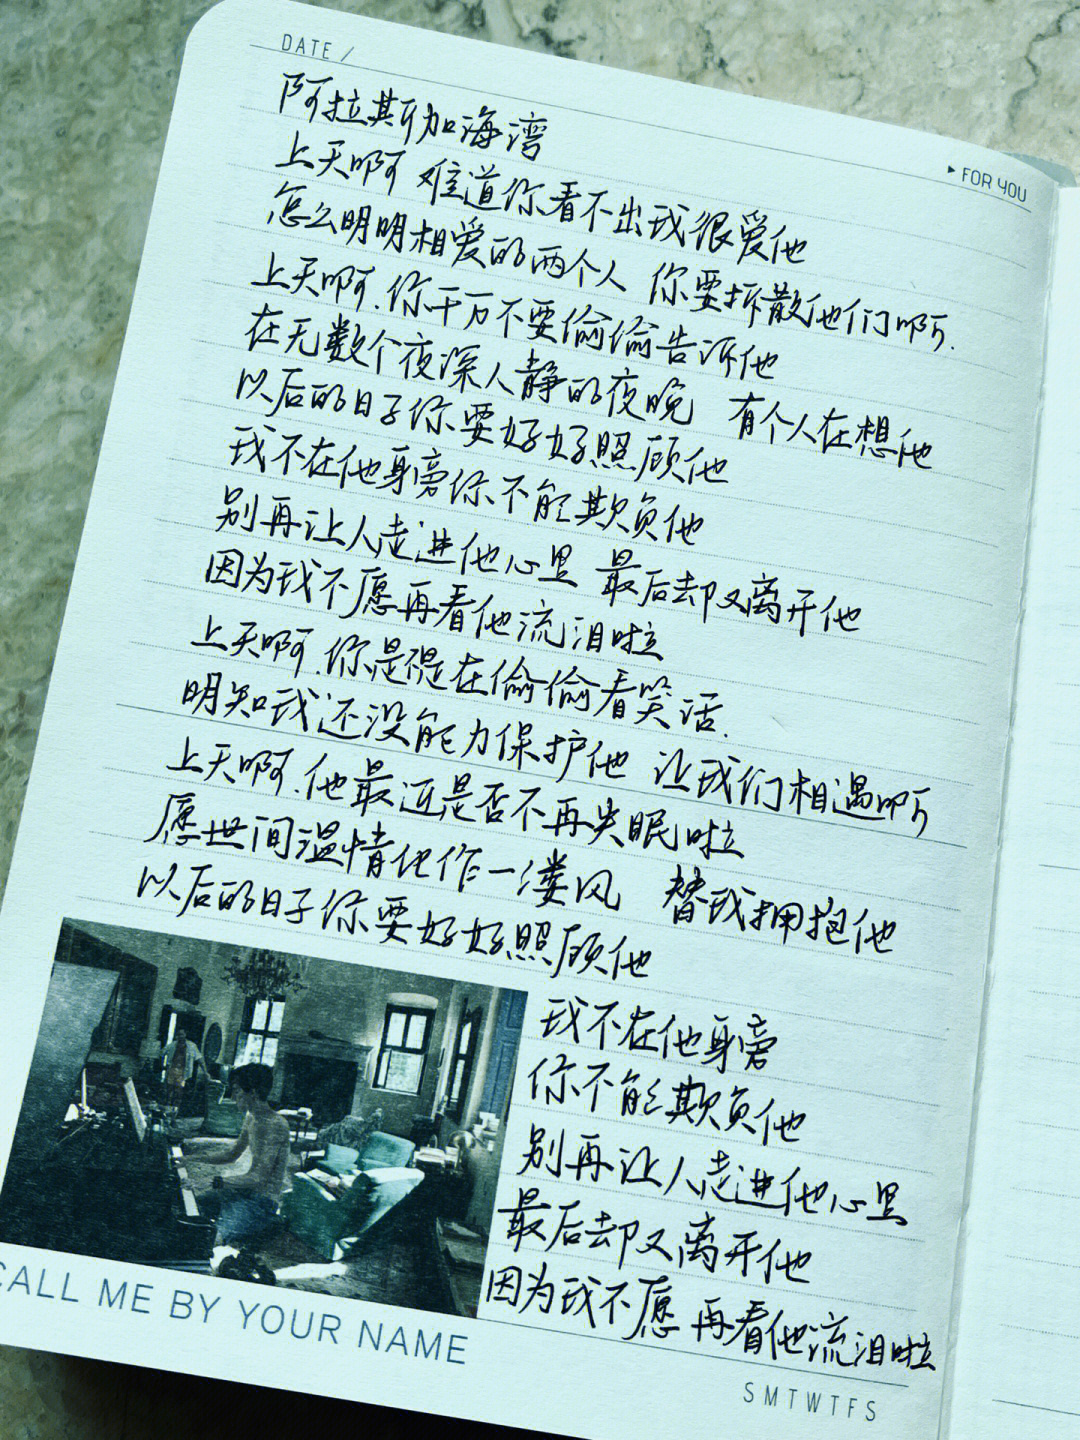 DATE /
FOR YOU
阿拉斯加海湾
上天啊 难道你看不出我很爱他
怎么明明相爱的两个人 你要拆散他们啊.
上天啊.你千万不要偷偷告诉他
在无数个夜深人静的夜晚 有个人在想他
以后的日子你要好好照顾他
我不在他身旁你不能欺负他
别再让人走进他心里 最后却又离开他
因为我不愿再看他流泪啦
上天啊.你是不是在偷偷看笑话.
明知我还没能力保护他 让我们相遇啊
上天啊.他最近是否不再失眠啦
愿世间温情化作一缕风 替我拥抱他
以后的日子你要好好照顾他
我不在他身旁
你不能欺负他
别再让人走进他心里
最后却又离开他
因为我不愿 再看他流泪啦
CALL ME BY YOUR NAME
S M T W T F S